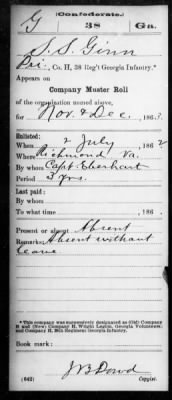 (Confederate.)
G 38 Ga.
S. S. Ginn
Pri., Co. H, 38 Reg't Georgia Infantry.*
Appears on
Company Muster Roll
of the organization named above,
for Nov. & Dec., 1863.
Enlisted:
When 2 July, 1862
Where Richmond Va.
By whom Capt. Eberhart
Period 3 yrs.
Last paid:
By whom
To what time , 186 .
Present or absent Absent
Remarks: Absent without
leave
*This company was successively designated as (Old) Company
H and (New) Company H, Wright Legion, Georgia Volunteers,
and Company H, 38th Regiment Georgia Infantry.
Book mark:
J B Dowd
(642) Copyist.